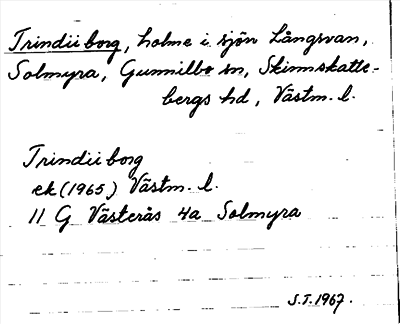 Trindii borg, holme i sjön Långsvan,
Solmyra, Gunnilbo sn, Skinnskatte-
bergs hd, Västm. l.
Trindii borg
ek (1965) Västm. l.
11 G Västerås 4a Solmyra
S.T. 1967.